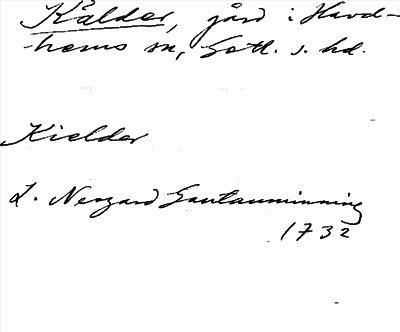 Kälder, gård i Havd-
-hems sn, Gotl. s. hd.
Kielder
L. Nergard Gautauminning
1732